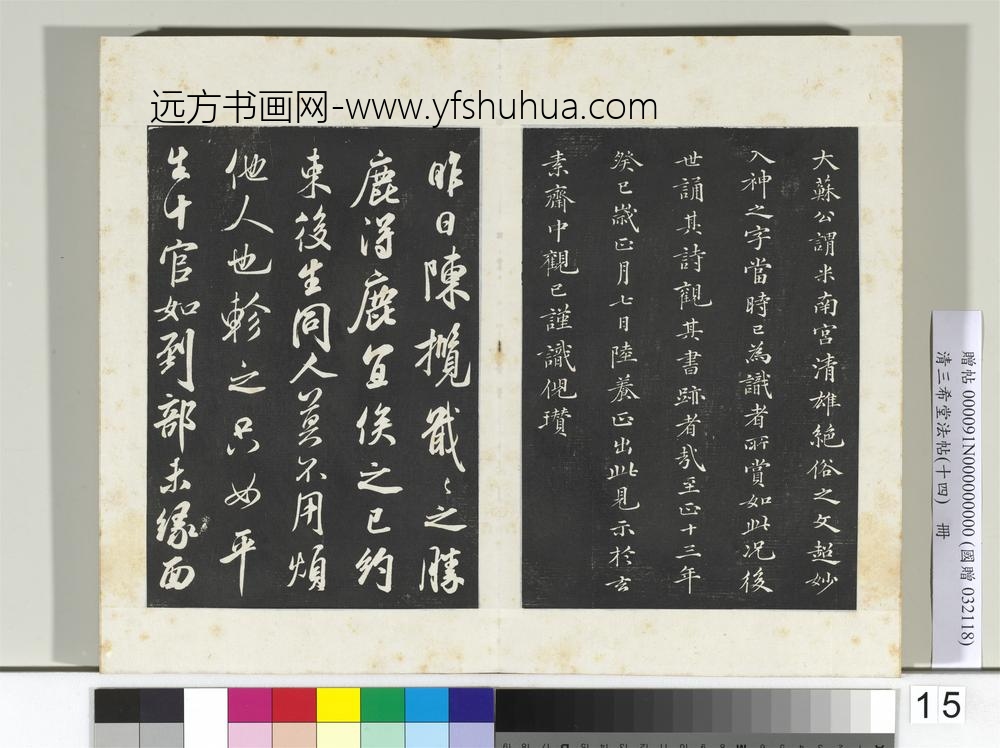 远方书画网-www.yfshuhua.com
大蘇公謂米南宮清雄絕俗之文超妙
入神之字當時已為識者所賞如此况後
世誦其詩觀其書跡者哉至正十三年
癸巳歲正月七日陸養正出此見示於玄
素齋中觀已謹識倪瓚
昨日陳攬戢〻之勝
鹿得鹿宜俟之已約
束後生同人莫不用煩
他人也軫之只如平
生十官如到部未緣面
贈帖 000091N000000000 (國贈 032118)
清三希堂法帖(十四) 冊
15